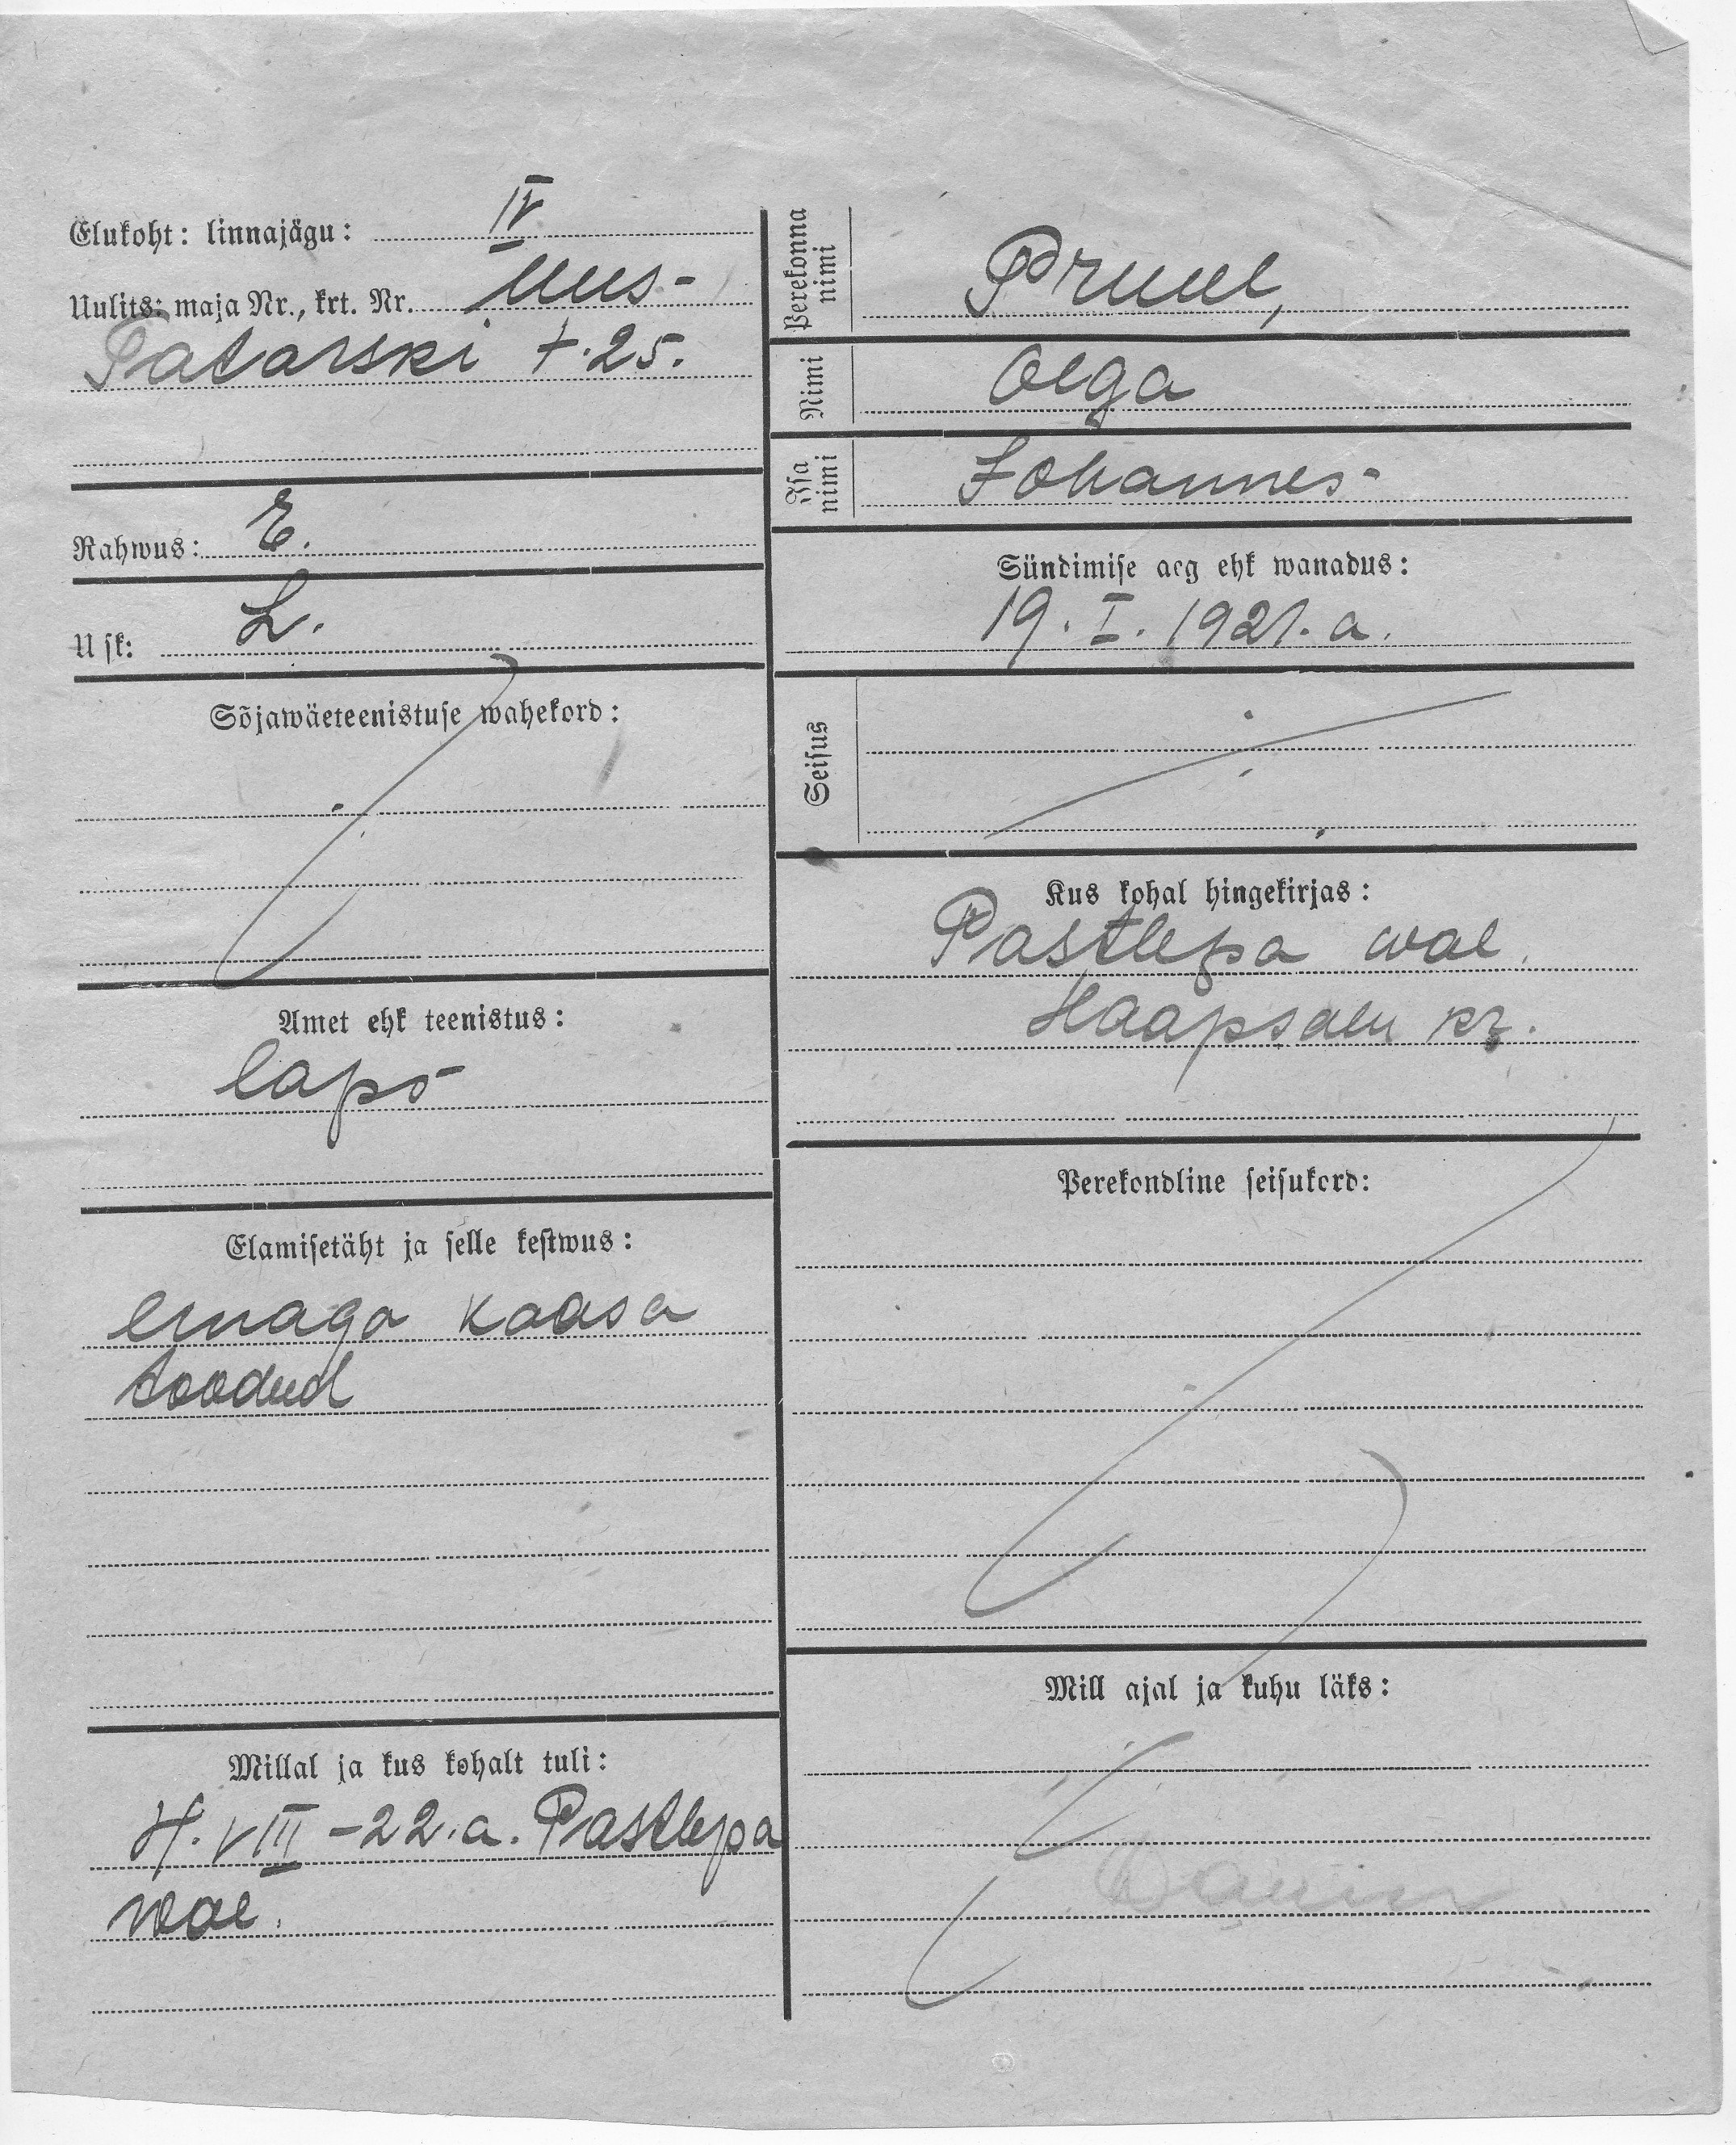 Elukoht: linnajägu: IV
Uulits: maja Nr., krt. Nr. Uus-
Tatarski t. 25.
Rahwus: E.
Usk: L.
Sõjawäeteenistuse wahekord:
Amet ehk teenistus:
laps
Elamisetäht ja selle kestwus:
emaga kaasa
toodud
Millal ja kus kohalt tuli:
VIII -22.a. Pastlepa
wal.
Perekonna
nimi
Pruul,
Nimi
Olga
Isa
nimi
Johannes
Sündimise aeg ehk wanadus:
19. I. 1921. a.
Seisus
Kus kohal hingekirjas:
Pastlepa wal.
Haapsalu kr.
Perekondline seisukord:
Mill ajal ja kuhu läks: